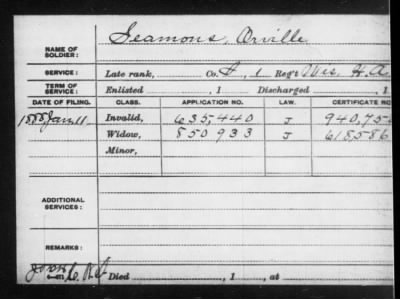 NAME OF SOLDIER: Seamons, Orville
SERVICE: Late rank, Co. I, 1 Reg't Wis. H. A
TERM OF SERVICE: Enlisted , 1 Discharged , 1
DATE OF FILING. CLASS. APPLICATION NO. LAW. CERTIFICATE NO
1888 Jan 11 Invalid, 635,440 J 940,75
Widow, 850 933 J 618,586
Minor,
ADDITIONAL SERVICES:
REMARKS:
Died , 1 , at